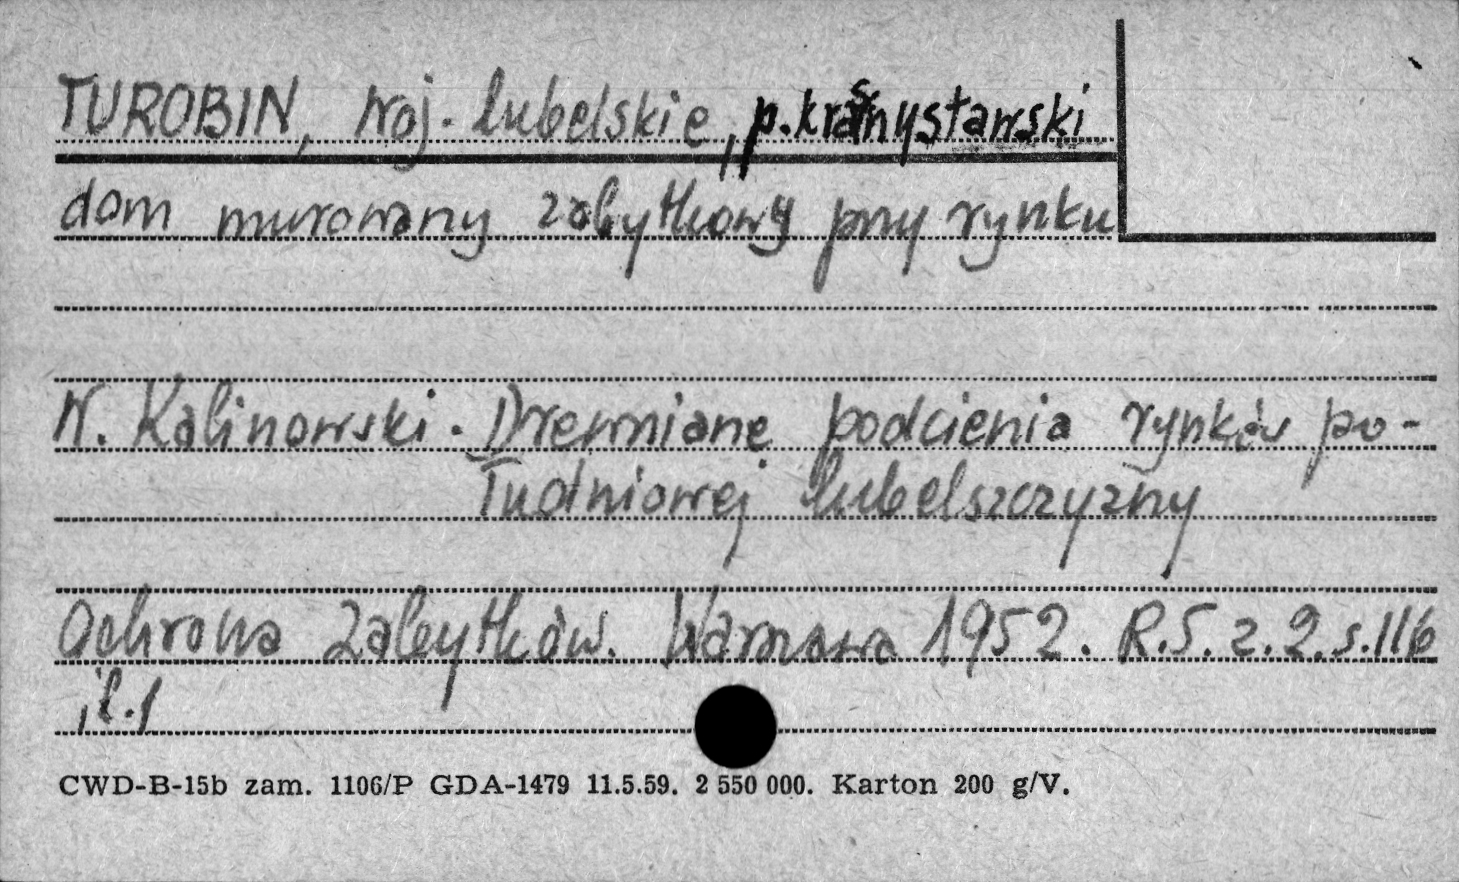 TUROBIN, woj. lubelskie, p. krasnystawski
dom murowany zabytkowy przy rynku
W. Kalinowski. Drewniane podcienia rynków po-
łudniowej lubelszczyzny
Ochrona Zabytków. Warszawa 1952. R.5. z.2. s.116
il.1
CWD-B-15b zam. 1106/P GDA-1479 11.5.59. 2 550 000. Karton 200 g/V.